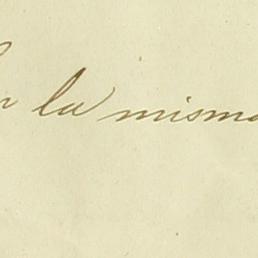 la misma